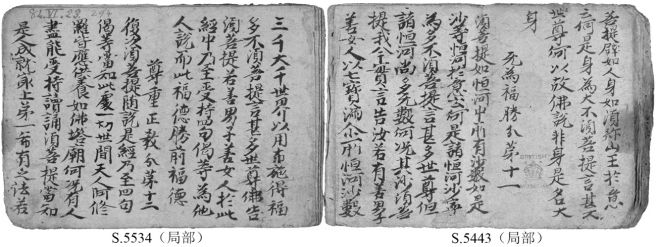 菩提譬如人身如須弥山王於意
云何是身為大不須菩提言甚大
世尊何以故佛說非身是名大
身
无為福勝分第十一
須菩提如恒河中所有沙數如是
沙等恒河於意云何是諸恒河沙寧
為多不須菩提言甚多世尊但
諸恒河尚多无數何況其沙須菩
提我今實言告汝若有善男子
善女人以七寶滿尒所恒河沙數
三千大千世界以用布施得福
多不須菩提言甚多世尊佛告
須菩提若善男子善女人於此
經中乃至受持四句偈等為他
人說而此福德勝前福德
尊重正教分第十二
復次須菩提隨說是經乃至四句
偈等當知此處一切世間天人阿修
羅皆應供養如佛塔廟何況有人
盡能受持讀誦須菩提當知
是人成就冣上第一希有之法若
S.5534（局部）
S.5443（局部）